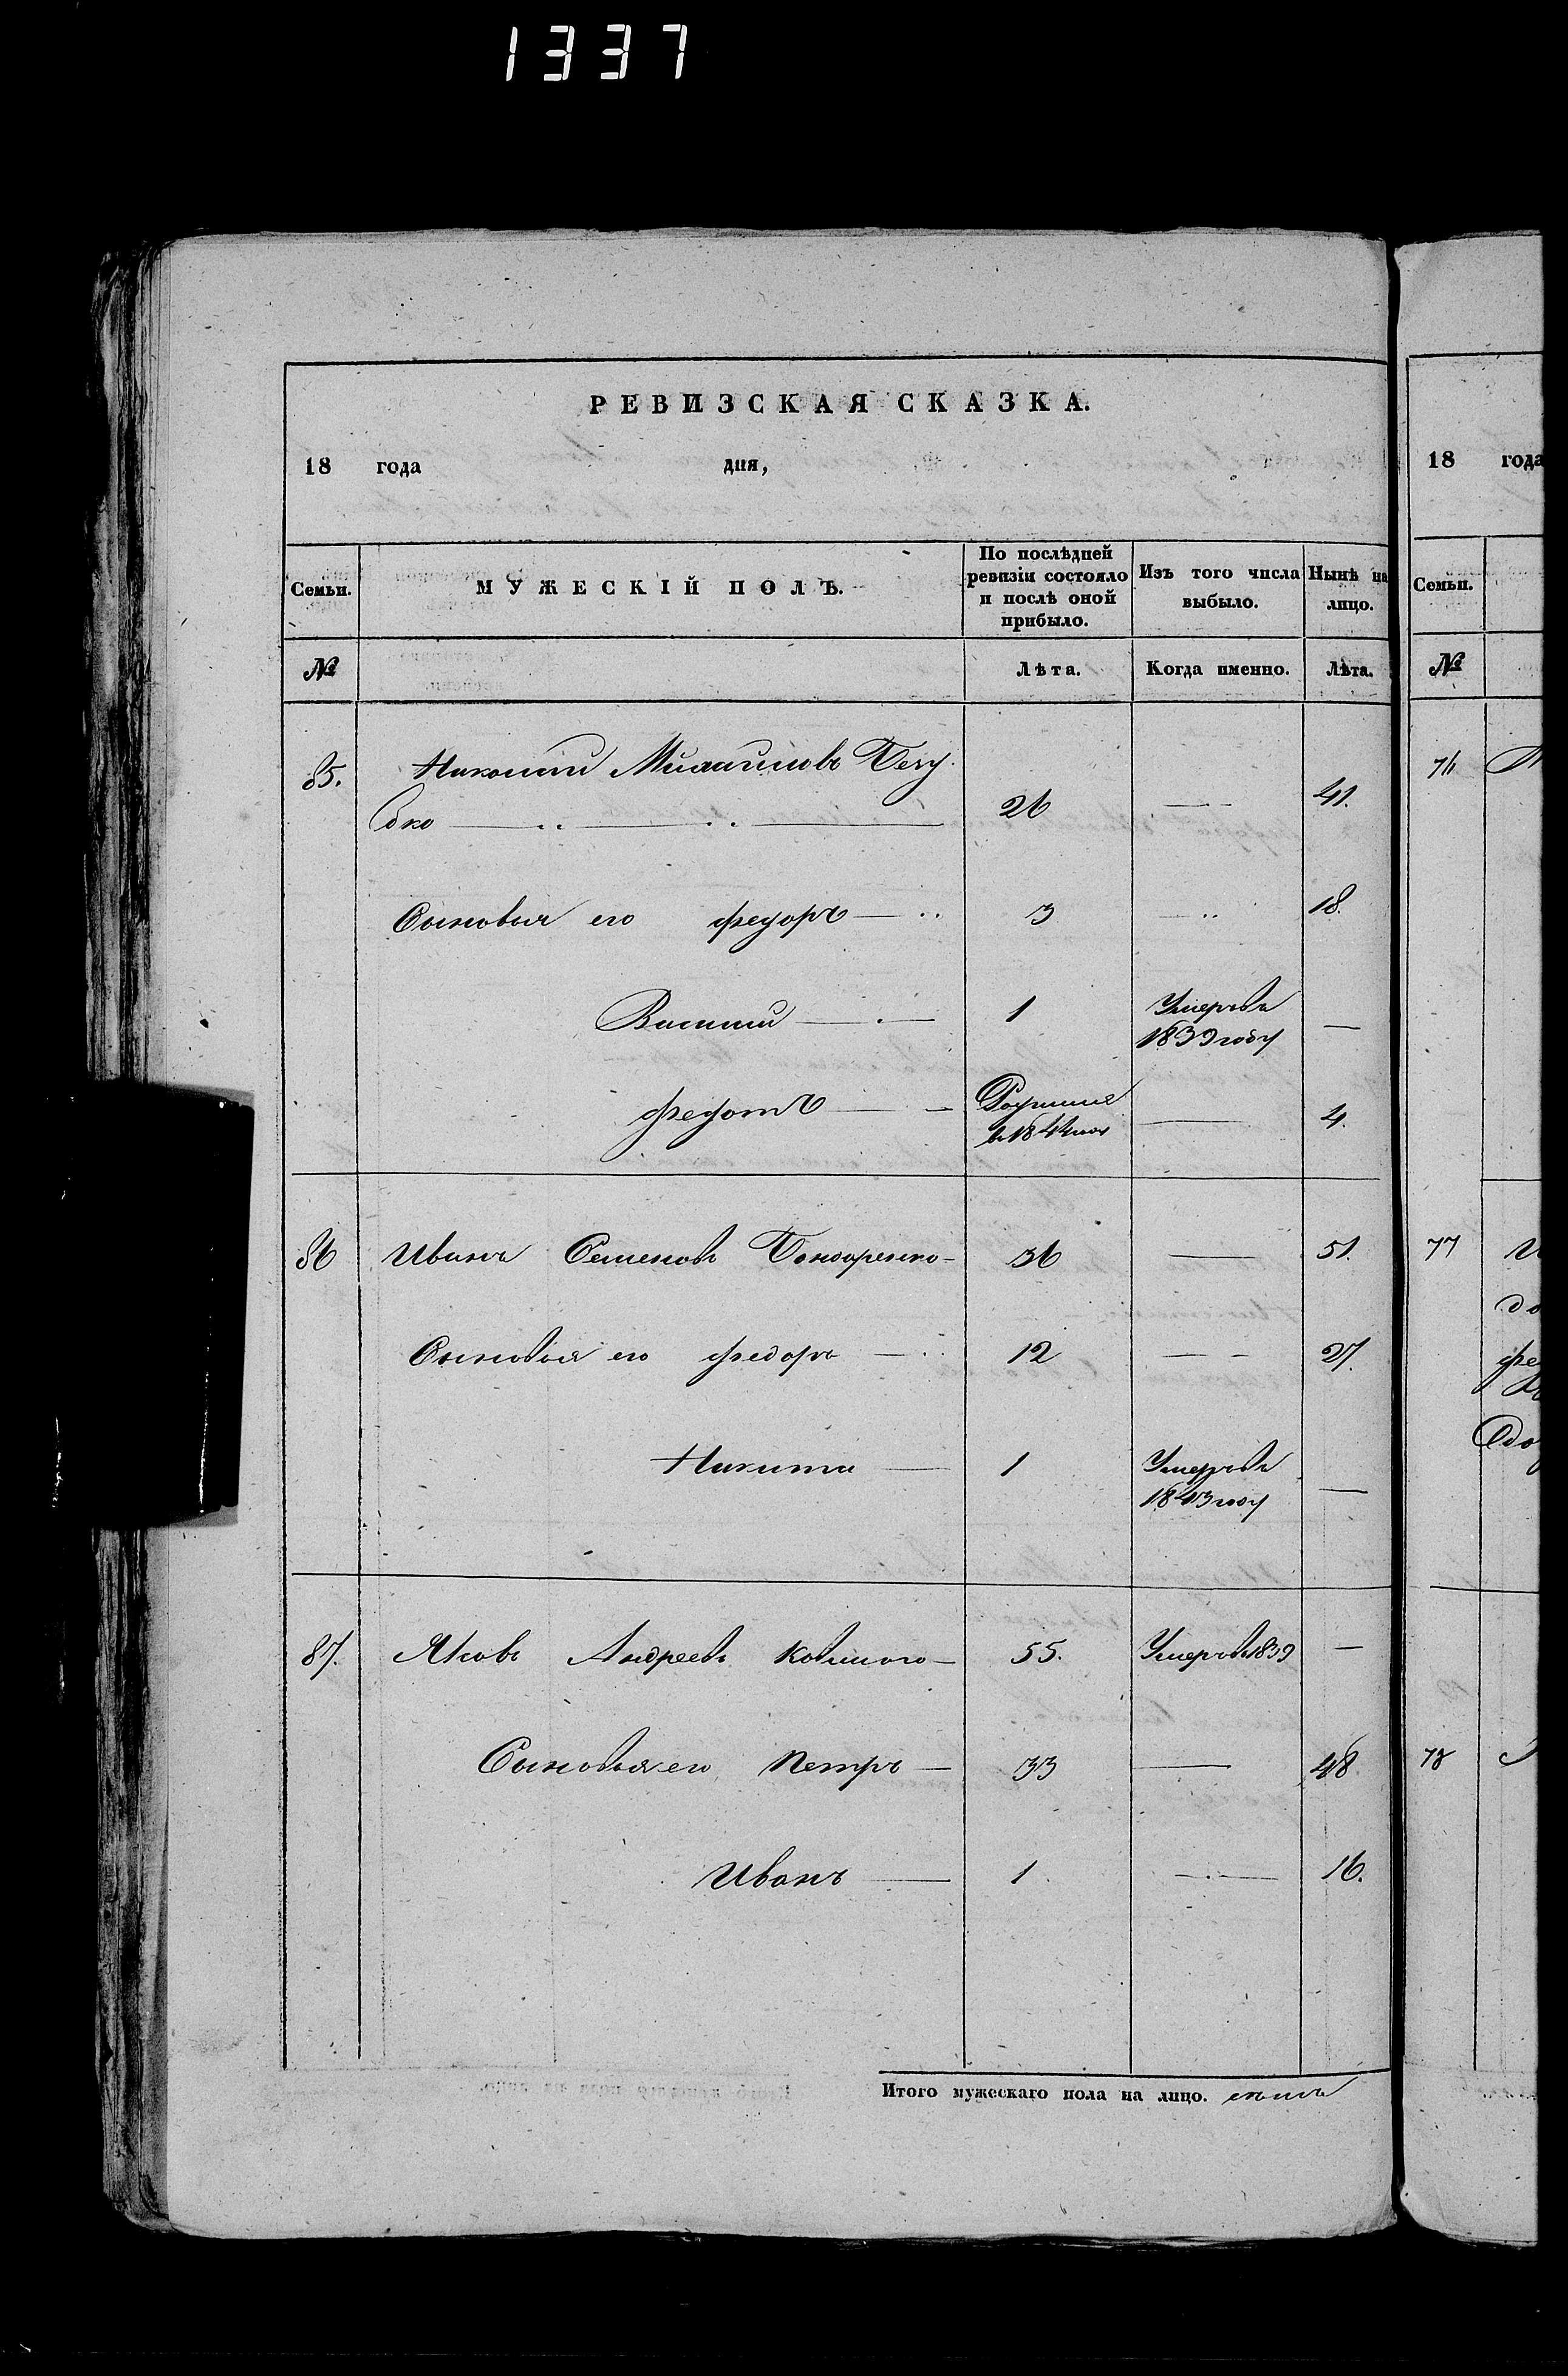 1337
РЕВИЗСКАЯ СКАЗКА.
18 года дня,
Семьи. МУЖЕСКІЙ ПОЛЪ. По послѣдней ревизіи состояло и послѣ оной прибыло. Изъ того числа выбыло. Нынѣ на лицо.
№ Лѣта. Когда именно. Лѣта.
85. Николай Михайловъ
26 41.
Сыновья его Федоръ 3 18.
Василій 1 Умеръ въ
1839 году
Федотъ 4.
86 Иванъ Семеновъ Бондаренко 36 51.
Сыновья его Федоръ 12 27.
Никита 1 Умеръ въ
1843 году
87. Яковъ Андреевъ 55. Умеръ въ 1839
Сыновья его Петръ 33 48
Иванъ 1 16.
Итого мужескаго пола на лицо. семь
18 года
Семьи.
№
76
77 И
78